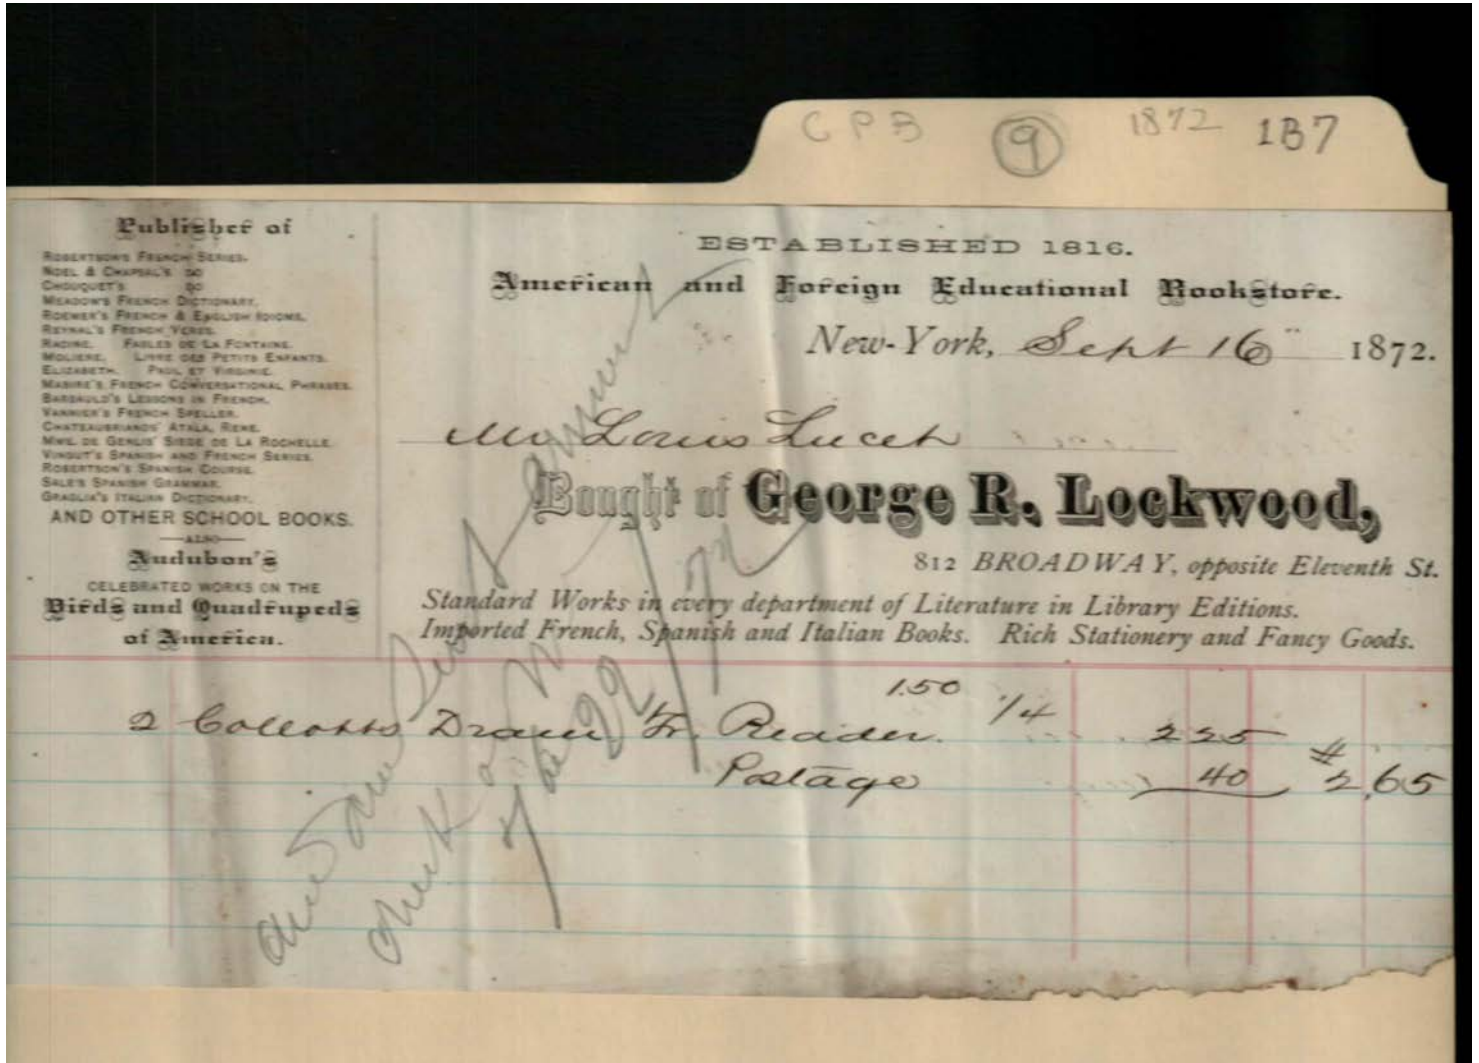 CPB 9 1872 1B7
Publisher of
ROBERTSON'S FRENCH SERIES.
NOEL & CHAPSAL'S DO
CHOUQUET'S DO
MEADOW'S FRENCH DICTIONARY.
ROEMER'S FRENCH & ENGLISH IDIOMS.
REYNAL'S FRENCH VERBS.
RACINE. FABLES DE LA FONTAINE.
MOLIERE. LIVRE DES PETITS ENFANTS.
ELIZABETH. PAUL ET VIRGINIE.
MABIRE'S FRENCH CONVERSATIONAL PHRASES.
BARBAULD'S LESSONS IN FRENCH.
VANNIER'S FRENCH SPELLER.
CHATEAUBRIANDS' ATALA, RENE.
MME. DE GENLIS' SIEGE DE LA ROCHELLE.
VINGUT'S SPANISH AND FRENCH SERIES.
ROBERTSON'S SPANISH COURSE.
SALE'S SPANISH GRAMMAR.
GRAGLIA'S ITALIAN DICTIONARY.
AND OTHER SCHOOL BOOKS.
ALSO
Audubon's
CELEBRATED WORKS ON THE
Birds and Quadrupeds
of America.
ESTABLISHED 1816.
American and Foreign Educational Bookstore.
New-York, Sept 16 1872.
Mr Louis
Bought of George R. Lockwood,
812 BROADWAY, opposite Eleventh St.
Standard Works in every department of Literature in Library Editions.
Imported French, Spanish and Italian Books. Rich Stationery and Fancy Goods.
2 Collotts Dram Fr. Reader. 1.50 1/4 225
Postage 40 # 2,65
check